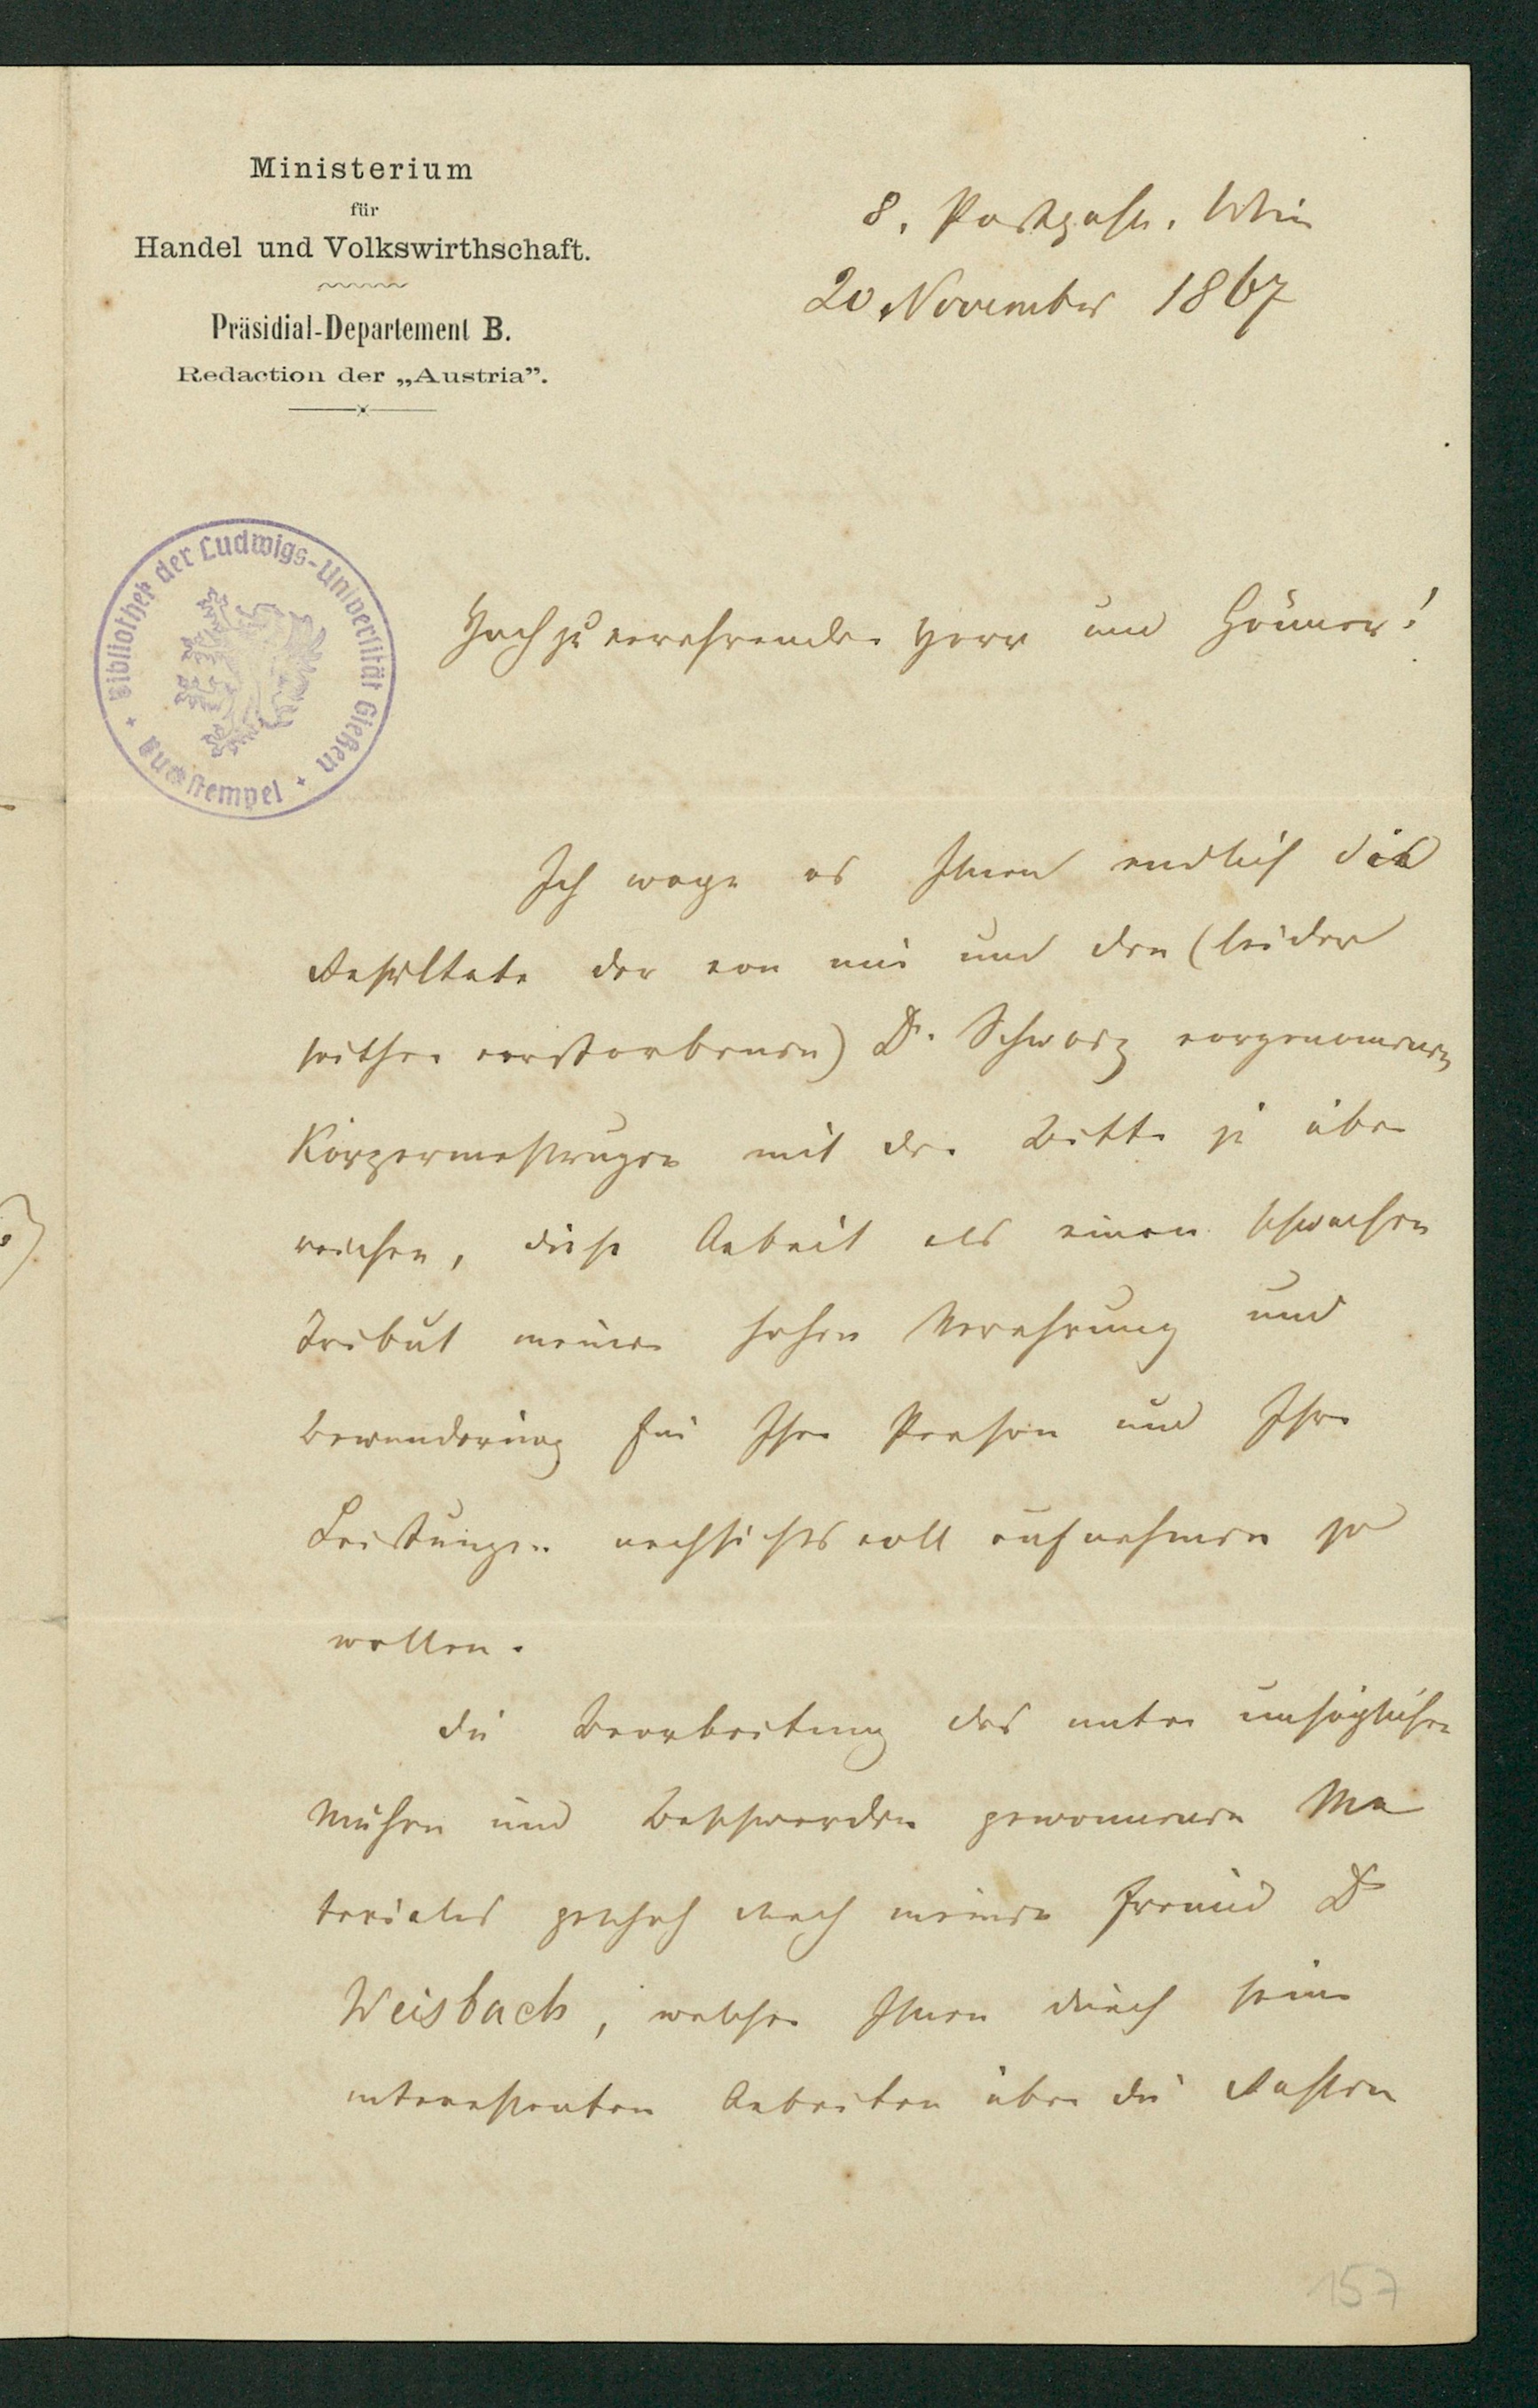 Ministerium
für
Handel und Volkswirthschaft.
Präsidial-Departement B.
Redaction der „Austria”.
8. Postgasse. Wien
20 November 1867
Bibliothek der Ludwigs-Universität Gießen
Buchstempel
Hochzuverehrender Herr und Gönner!
Ich wage es Ihnen endlich die
Resultate der von mir und dem (leider
seither verstorbenen) Dr. Schwarz vorgenommenen
Körpermessungen mit der Bitte zu über
reichen, diese Arbeit als einen schwachen
Tribut meiner hohen Verehrung und
Bewunderung für Ihre Person und Ihre
Leistungen nachsichtsvoll aufnehmen zu
wollen.
Die Bearbeitung des unter unsäglichen
Mühen und Beschwerden gewonnenen Ma
teriales geschah durch meinen Freund Dr
Weisbach, welcher Ihnen durch seine
interessanten Arbeiten über die Rassen
157